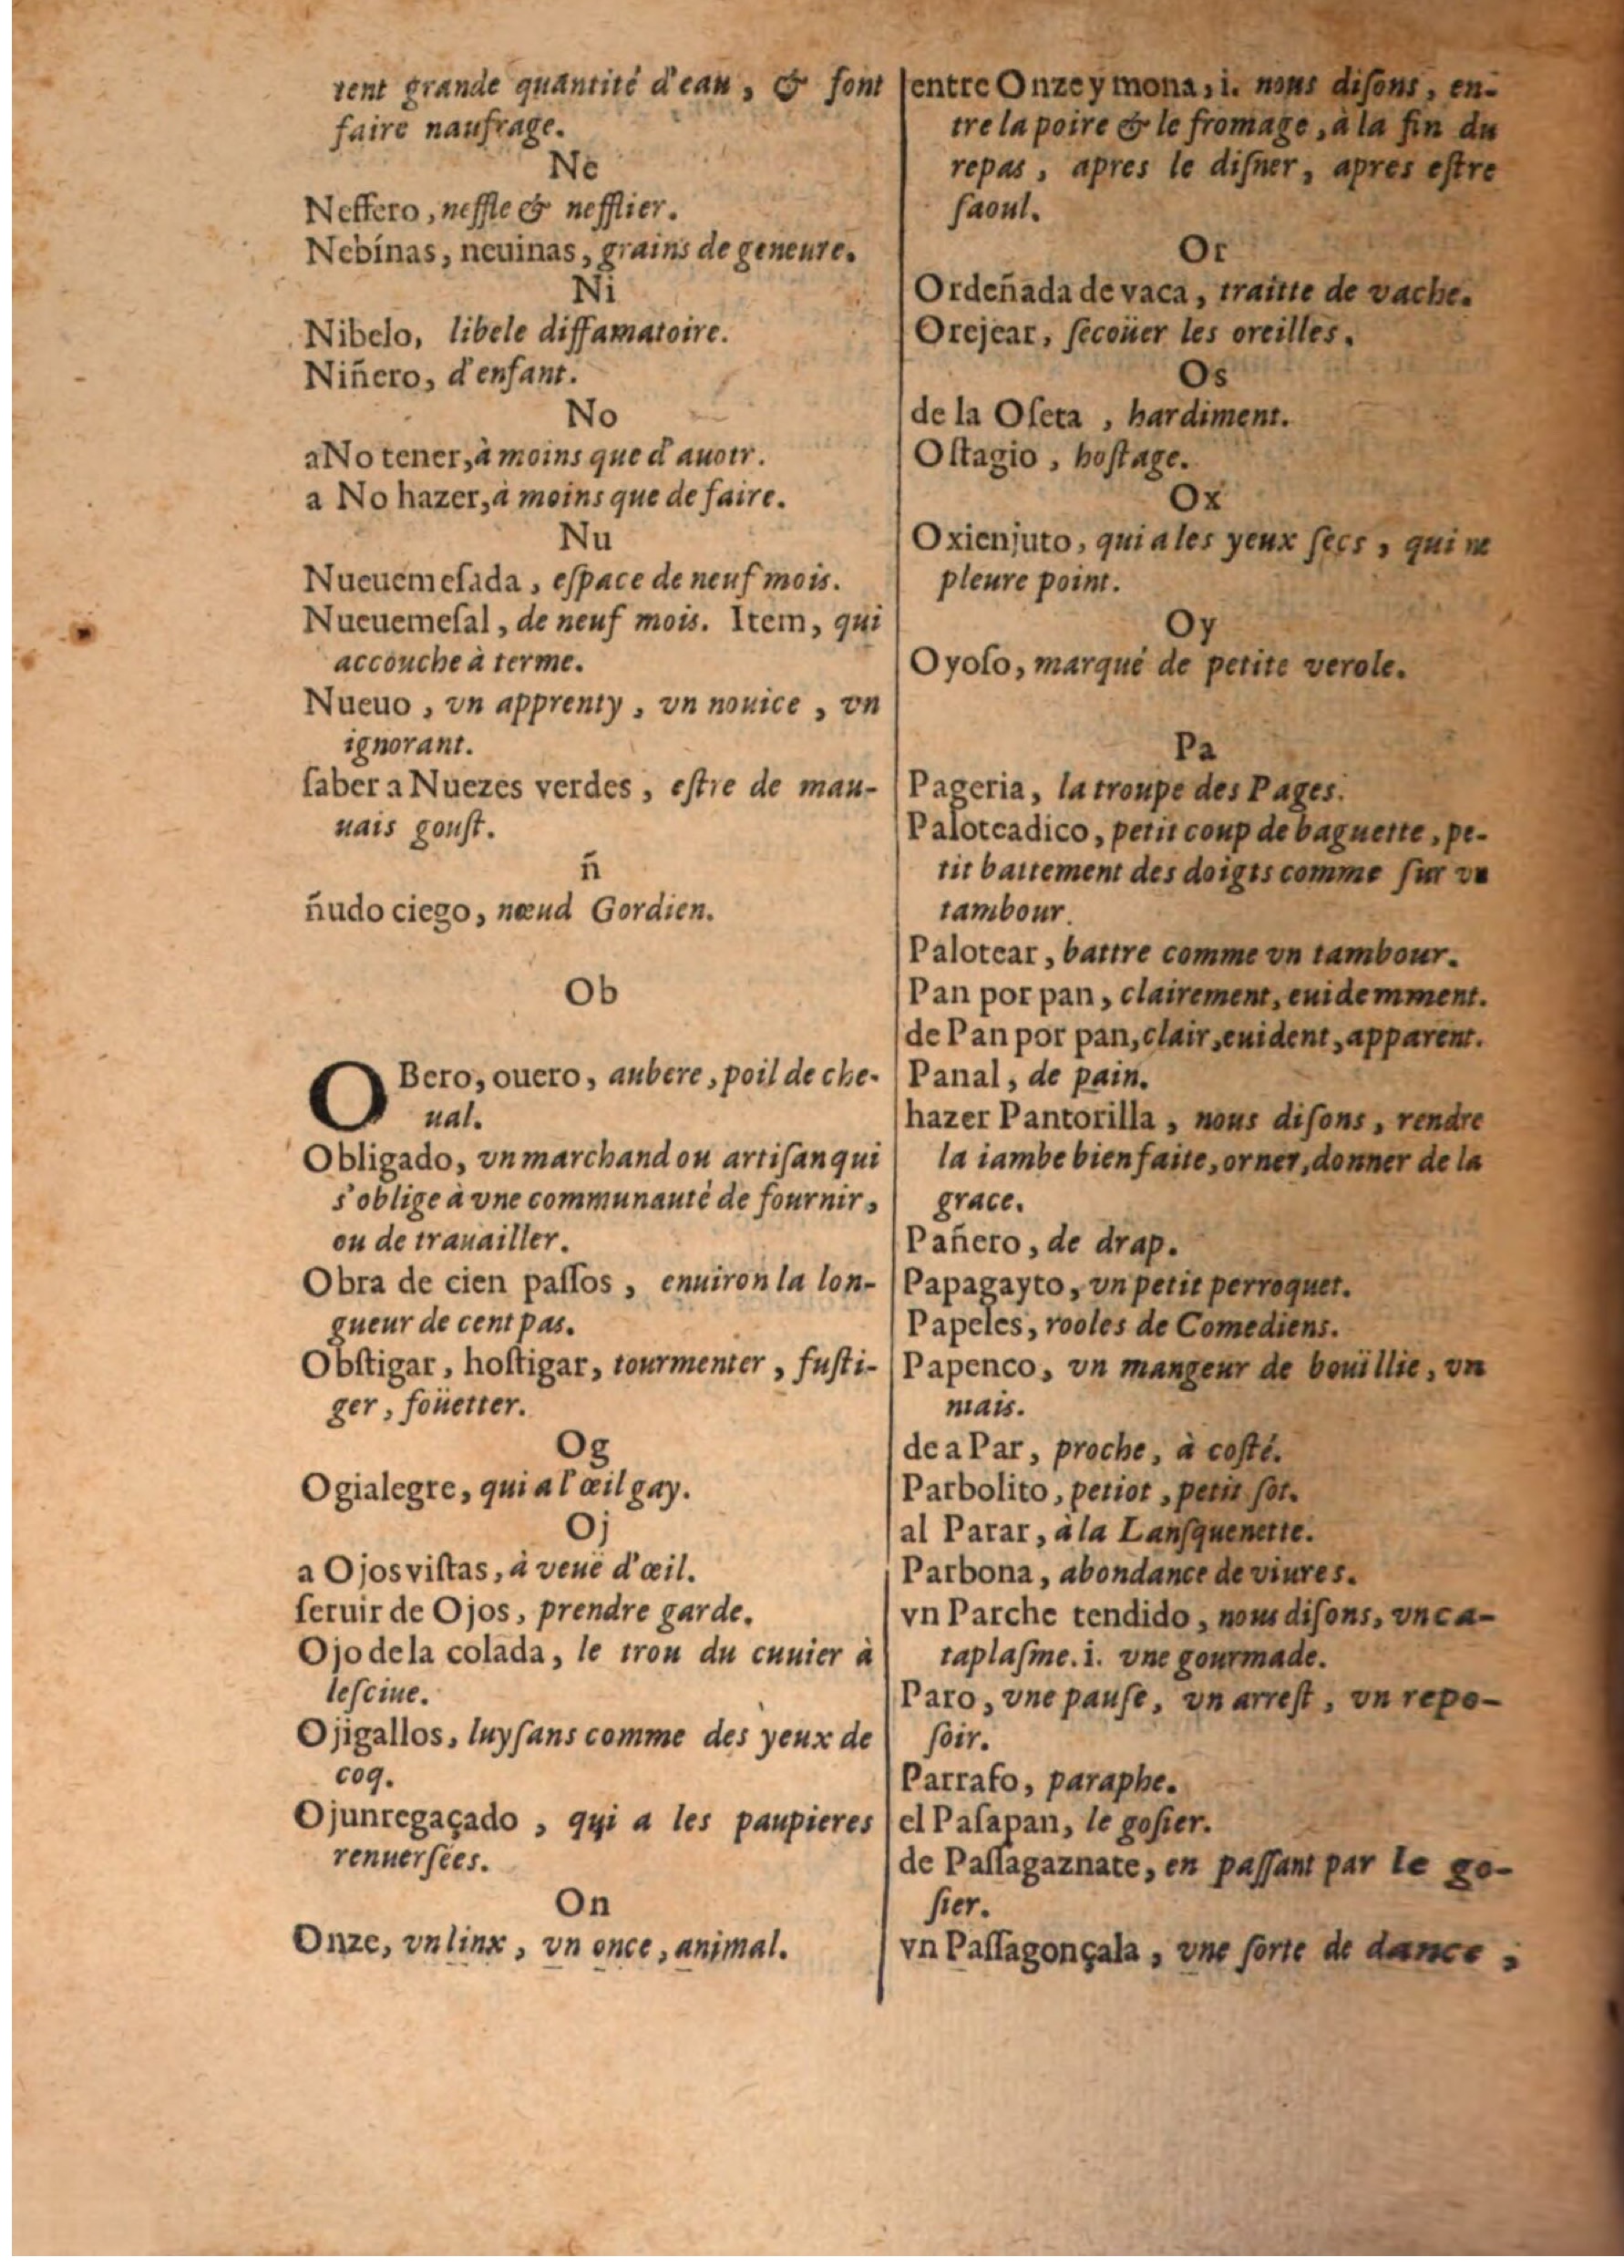 tent grande quantité d'eau, & font
faire naufrage.
Ne
Neffero, neffle & nefflier.
Nebínas, neuinas, grains de geneure.
Ni
Nibelo, libele diffamatoire.
Niñero, d'enfant.
No
a No tener, à moins que d'auoir.
a No hazer, à moins que de faire.
Nu
Nueuemeſada, eſpace de neuf mois.
Nueuemeſal, de neuf mois. Item, qui
accouche à terme.
Nueuo, vn apprenty, vn nouice, vn
ignorant.
ſaber a Nuezes verdes, eſtre de mau-
uais gouſt.
ñ
ñudo ciego, nœud Gordien.
Ob
OBero, ouero, aubere, poil de che-
ual.
Obligado, vn marchand ou artiſan qui
s'oblige à vne communauté de fournir,
ou de trauailler.
Obra de cien paſſos, enuiron la lon-
gueur de cent pas.
Obſtigar, hoſtigar, tourmenter, fuſti-
ger, foüetter.
Og
Ogialegre, qui a l'œil gay.
Oj
a Ojos viſtas, à veuë d'œil.
ſeruir de Ojos, prendre garde.
Ojo de la colada, le trou du cuuier à
leſciue.
Ojigallos, luyſans comme des yeux de
coq.
Ojunregaçado, qui a les paupieres
renuerſées.
On
Onze, vn linx, vn once, animal.
entre Onze y mona, i. nous diſons, en-
tre la poire & le fromage, à la fin du
repas, apres le diſner, apres eſtre
ſaoul.
Or
Ordeñada de vaca, traitte de vache.
Orejear, ſecoüer les oreilles.
Os
de la Oſeta, hardiment.
Oſtagio, hoſtage.
Ox
Oxienjuto, qui a les yeux ſecs, qui ne
pleure point.
Oy
Oyoſo, marqué de petite verole.
Pa
Pageria, la troupe des Pages.
Paloteadico, petit coup de baguette, pe-
tit battement des doigts comme ſur vn
tambour.
Palotear, battre comme vn tambour.
Pan por pan, clairement, euidemment.
de Pan por pan, clair, euident, apparent.
Panal, de pain.
hazer Pantorilla, nous diſons, rendre
la iambe bien faite, orner, donner de la
grace.
Pañero, de drap.
Papagayto, vn petit perroquet.
Papeles, rooles de Comediens.
Papenco, vn mangeur de boüillie, vn
niais.
de a Par, proche, à coſté.
Parbolito, petiot, petit ſot.
al Parar, à la Lanſquenette.
Parbona, abondance de viures.
vn Parche tendido, nous diſons, vn ca-
taplaſme. i. vne gourmade.
Paro, vne pauſe, vn arreſt, vn repo-
ſoir.
Parrafo, paraphe.
el Paſapan, le goſier.
de Paſſagaznate, en paſſant par le go-
ſier.
vn Paſſagonçala, vne ſorte de dance,